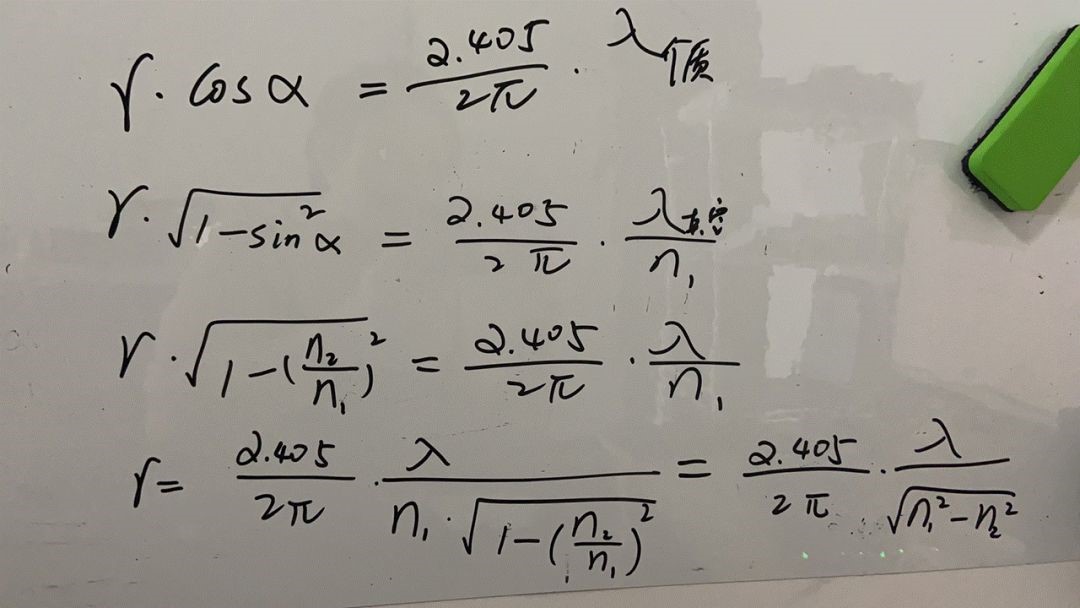 r · cosα = 2.405/2π · λ介质
r · √(1-sin²α) = 2.405/2π · λ真空/n₁
r · √(1-(n₂/n₁)²) = 2.405/2π · λ/n₁
r = 2.405/2π · λ/(n₁·√(1-(n₂/n₁)²)) = 2.405/2π · λ/√(n₁²-n₂²)